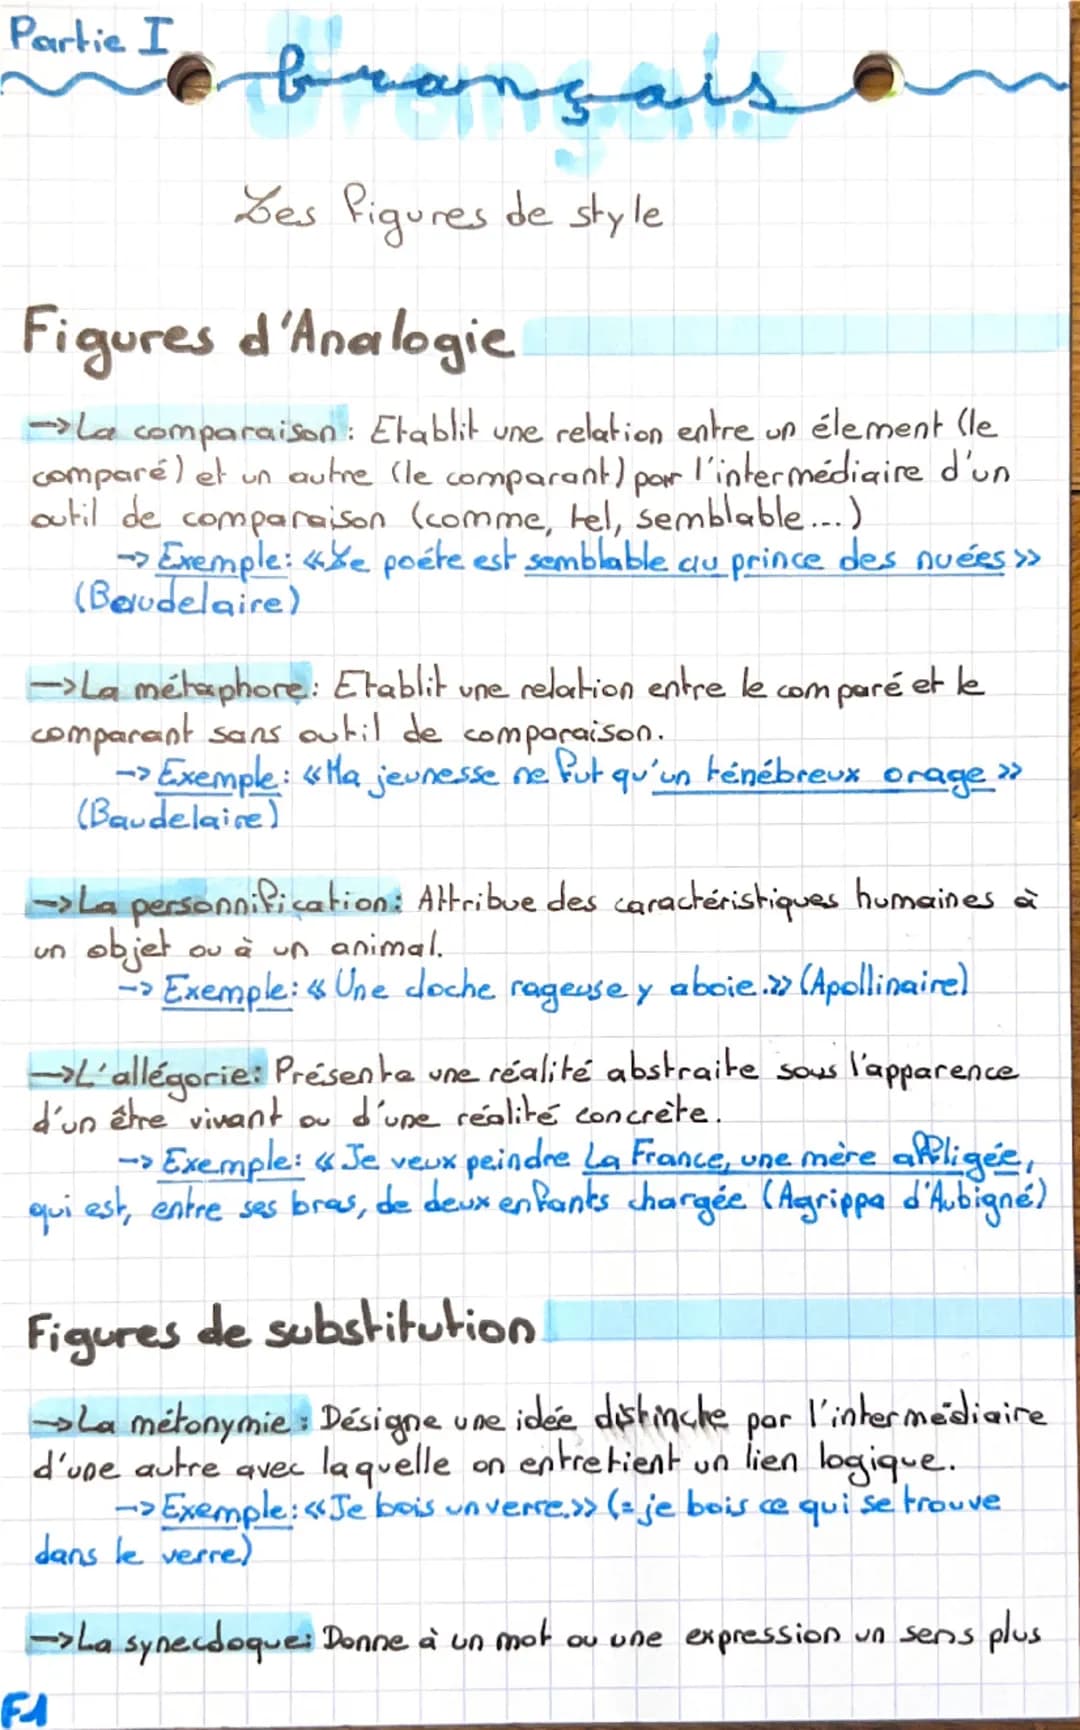 Partie I
Français
Les figures de style
Figures d'Analogie
→La comparaison : Etablit une relation entre un élement (le
comparé) et un autre (le comparant) par l'intermédiaire d'un
outil de comparaison (comme, tel, semblable...)
→ Exemple: «Le poéte est semblable au prince des nuées »
(Baudelaire)
→La métaphore : Etablit une relation entre le comparé et le
comparant sans outil de comparaison.
→ Exemple : «Ma jeunesse ne fut qu'un ténébreux orage »
(Baudelaire)
→La personnification : Attribue des caractéristiques humaines à
un objet ou à un animal.
→ Exemple: « Une cloche rageuse y aboie.» (Apollinaire)
→L'allégorie: Présente une réalité abstraite sous l'apparence
d'un être vivant ou d'une réalité concrète.
→ Exemple: « Je veux peindre La France, une mère affligée,
qui est, entre ses bras, de deux enfants chargée (Agrippa d'Aubigné)
Figures de substitution
→La métonymie : Désigne une idée distincte par l'intermédiaire
d'une autre avec laquelle on entretient un lien logique.
→ Exemple: «Je bois un verre.» (= je bois ce qui se trouve
dans le verre)
→La synecdoque: Donne à un mot ou une expression un sens plus
F1